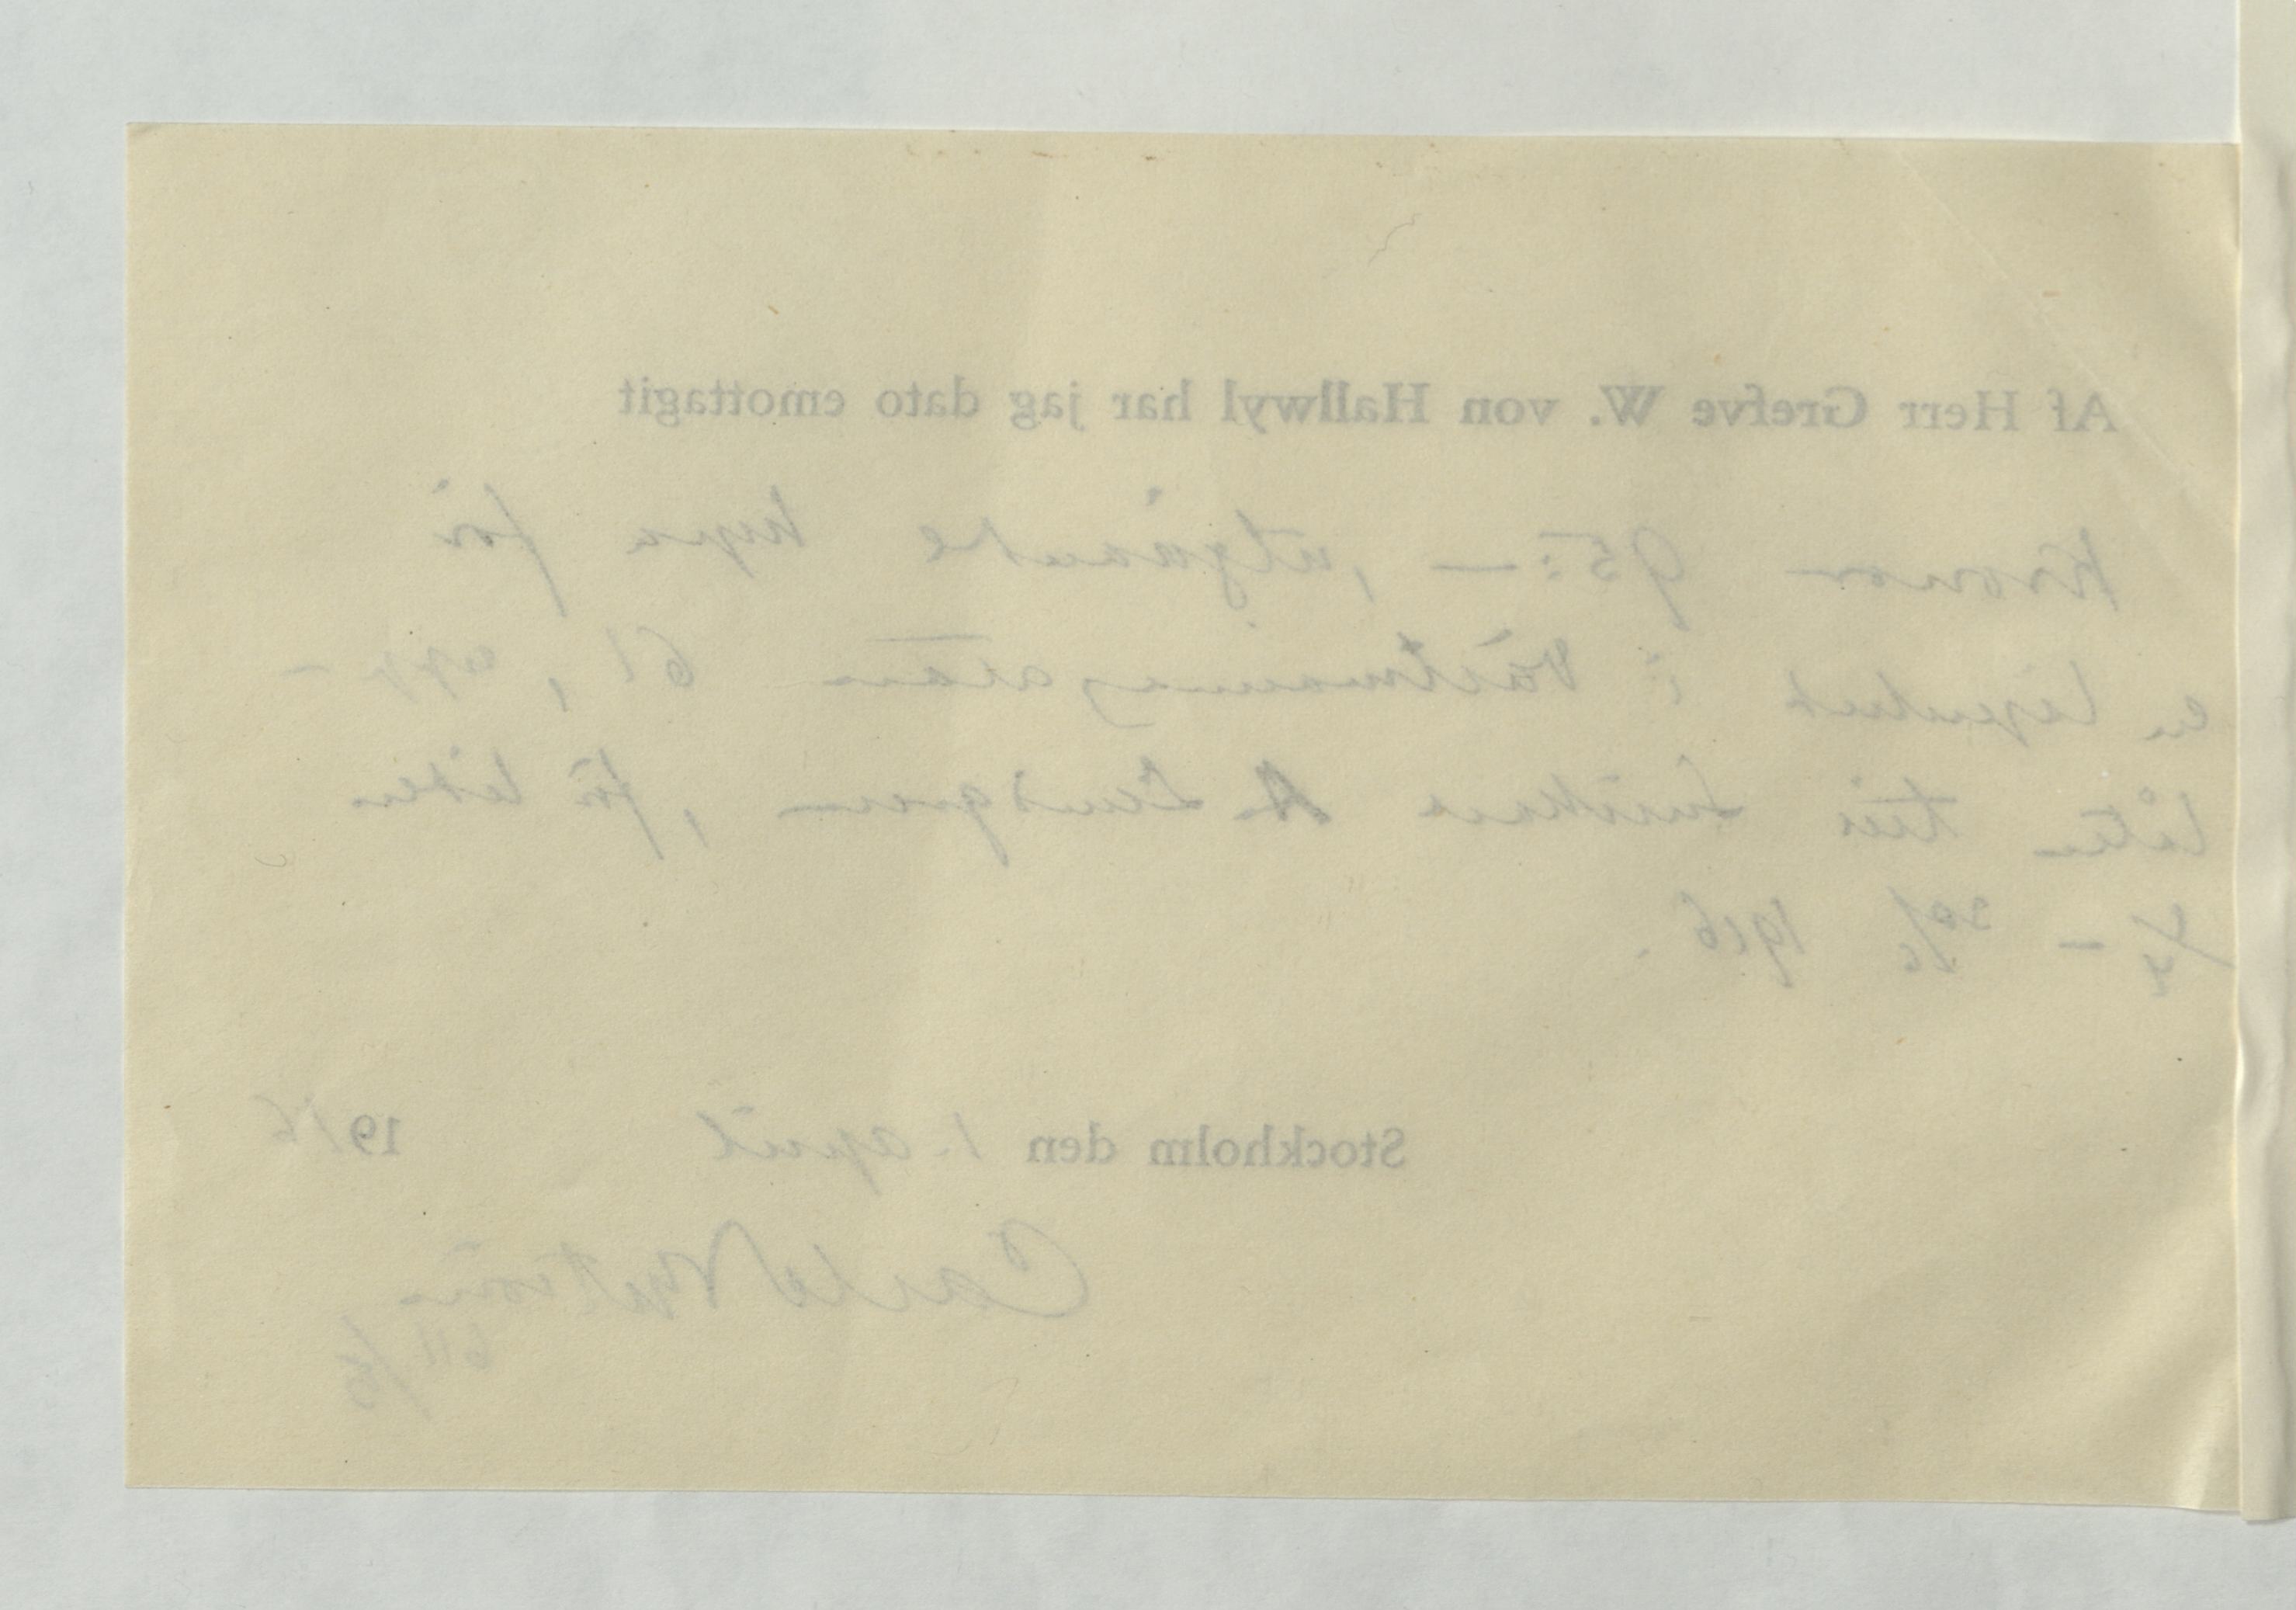 Af Herr Grefve W. von Hallwyl har jag dato emottagit
Kronor 95:— , utgörande hyra för
en lägenhet i Västmannagatan 61, upp-
låten till A. Lindgren, för tiden
1/4 – 30/6 1916.
Stockholm den 1. april 1916